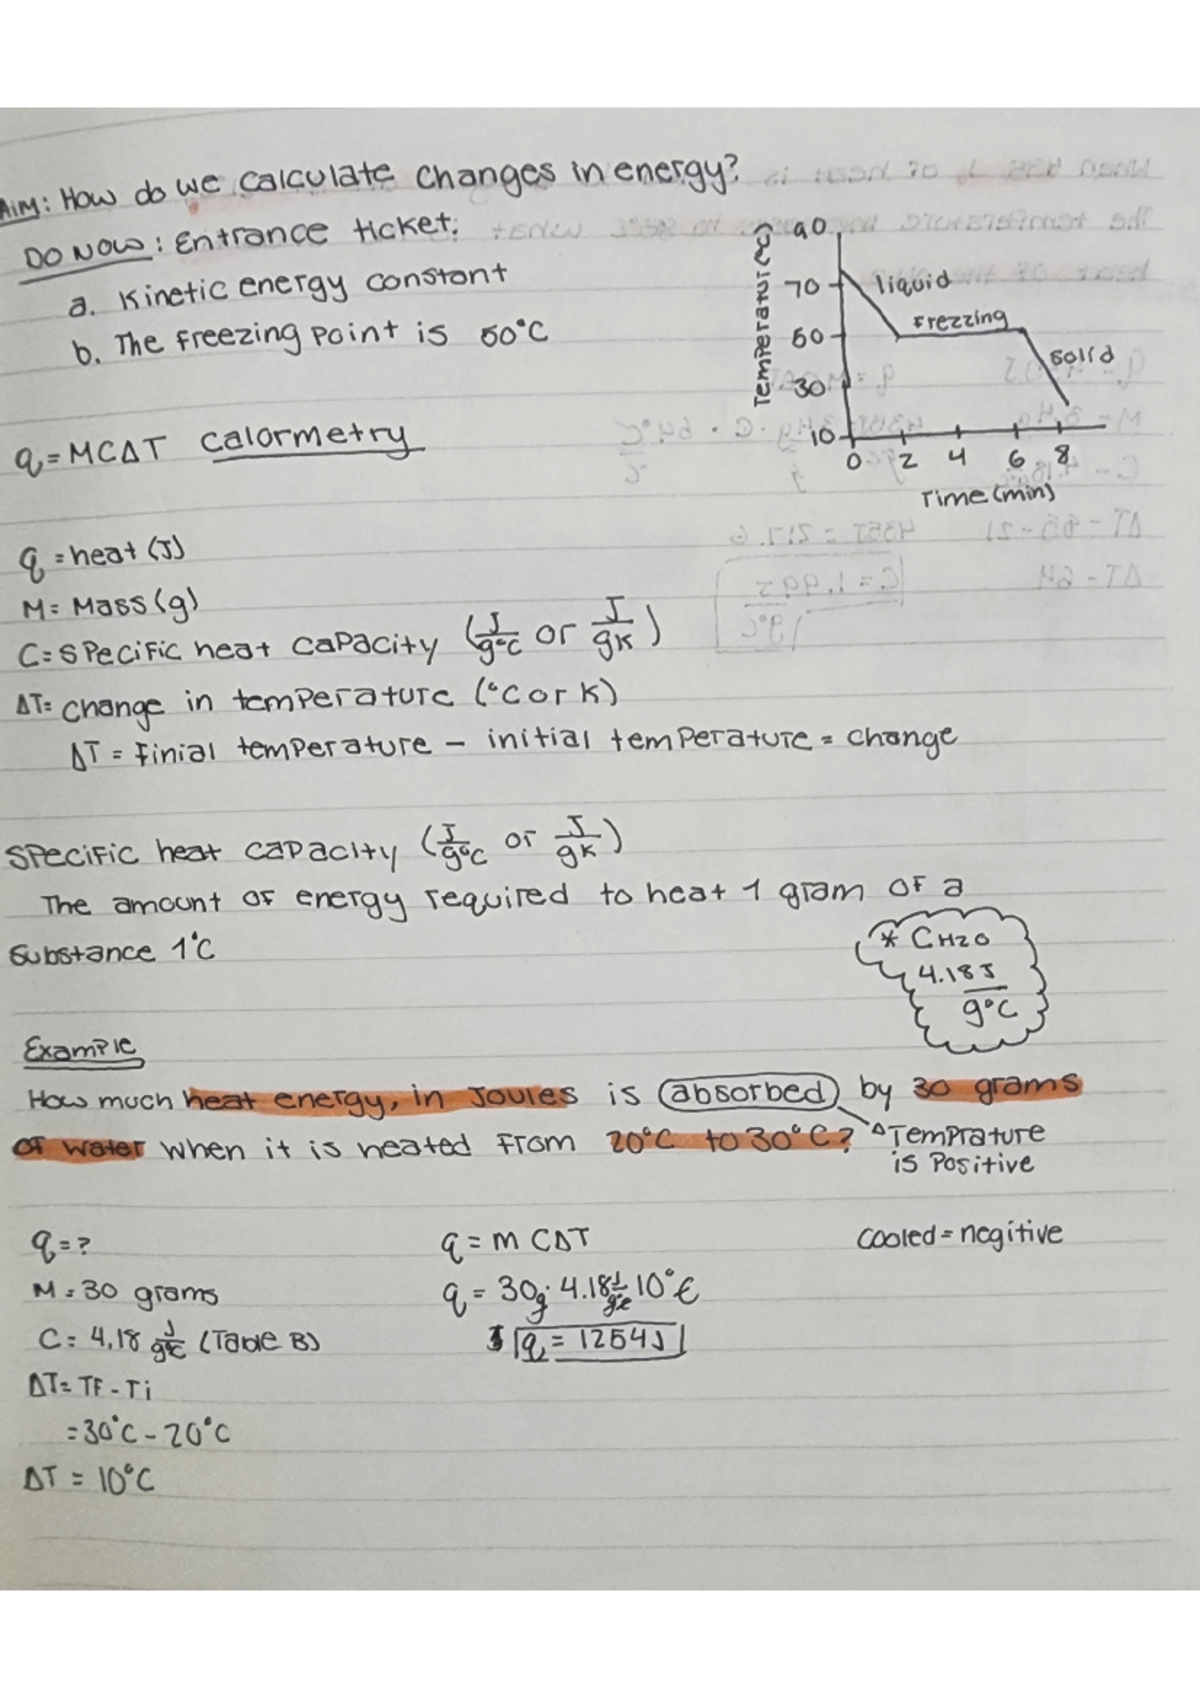 Aim: How do we calculate changes in energy?
DO NOW: Entrance ticket:
a. Kinetic energy constant
b. The freezing point is 50°C
Temperature(°C)
90
70
50
30
10
0 2 4 6 8
Time (min)
liquid
Frezzing
solid
q = MCΔT calormetry
q = heat (J)
M = Mass (g)
C = specific heat capacity (J/g°C or J/gK)
ΔT = change in temperature (°C or K)
ΔT = Finial temperature - initial temperature = change
Specific heat capacity (J/g°C or J/gK)
The amount of energy required to heat 1 gram of a
substance 1°C
* CH2O
4.18J
g°C
Example
How much heat energy, in Joules is absorbed by 30 grams
of water when it is heated from 20°C to 30°C? ΔTemprature
is Positive
q = ?
M = 30 grams
C = 4.18 J/g°C (Table B)
ΔT = TF - Ti
= 30°C - 20°C
ΔT = 10°C
q = m CΔT
q = 30g · 4.18 J/g°C 10°C
q = 1254J
cooled = negitive